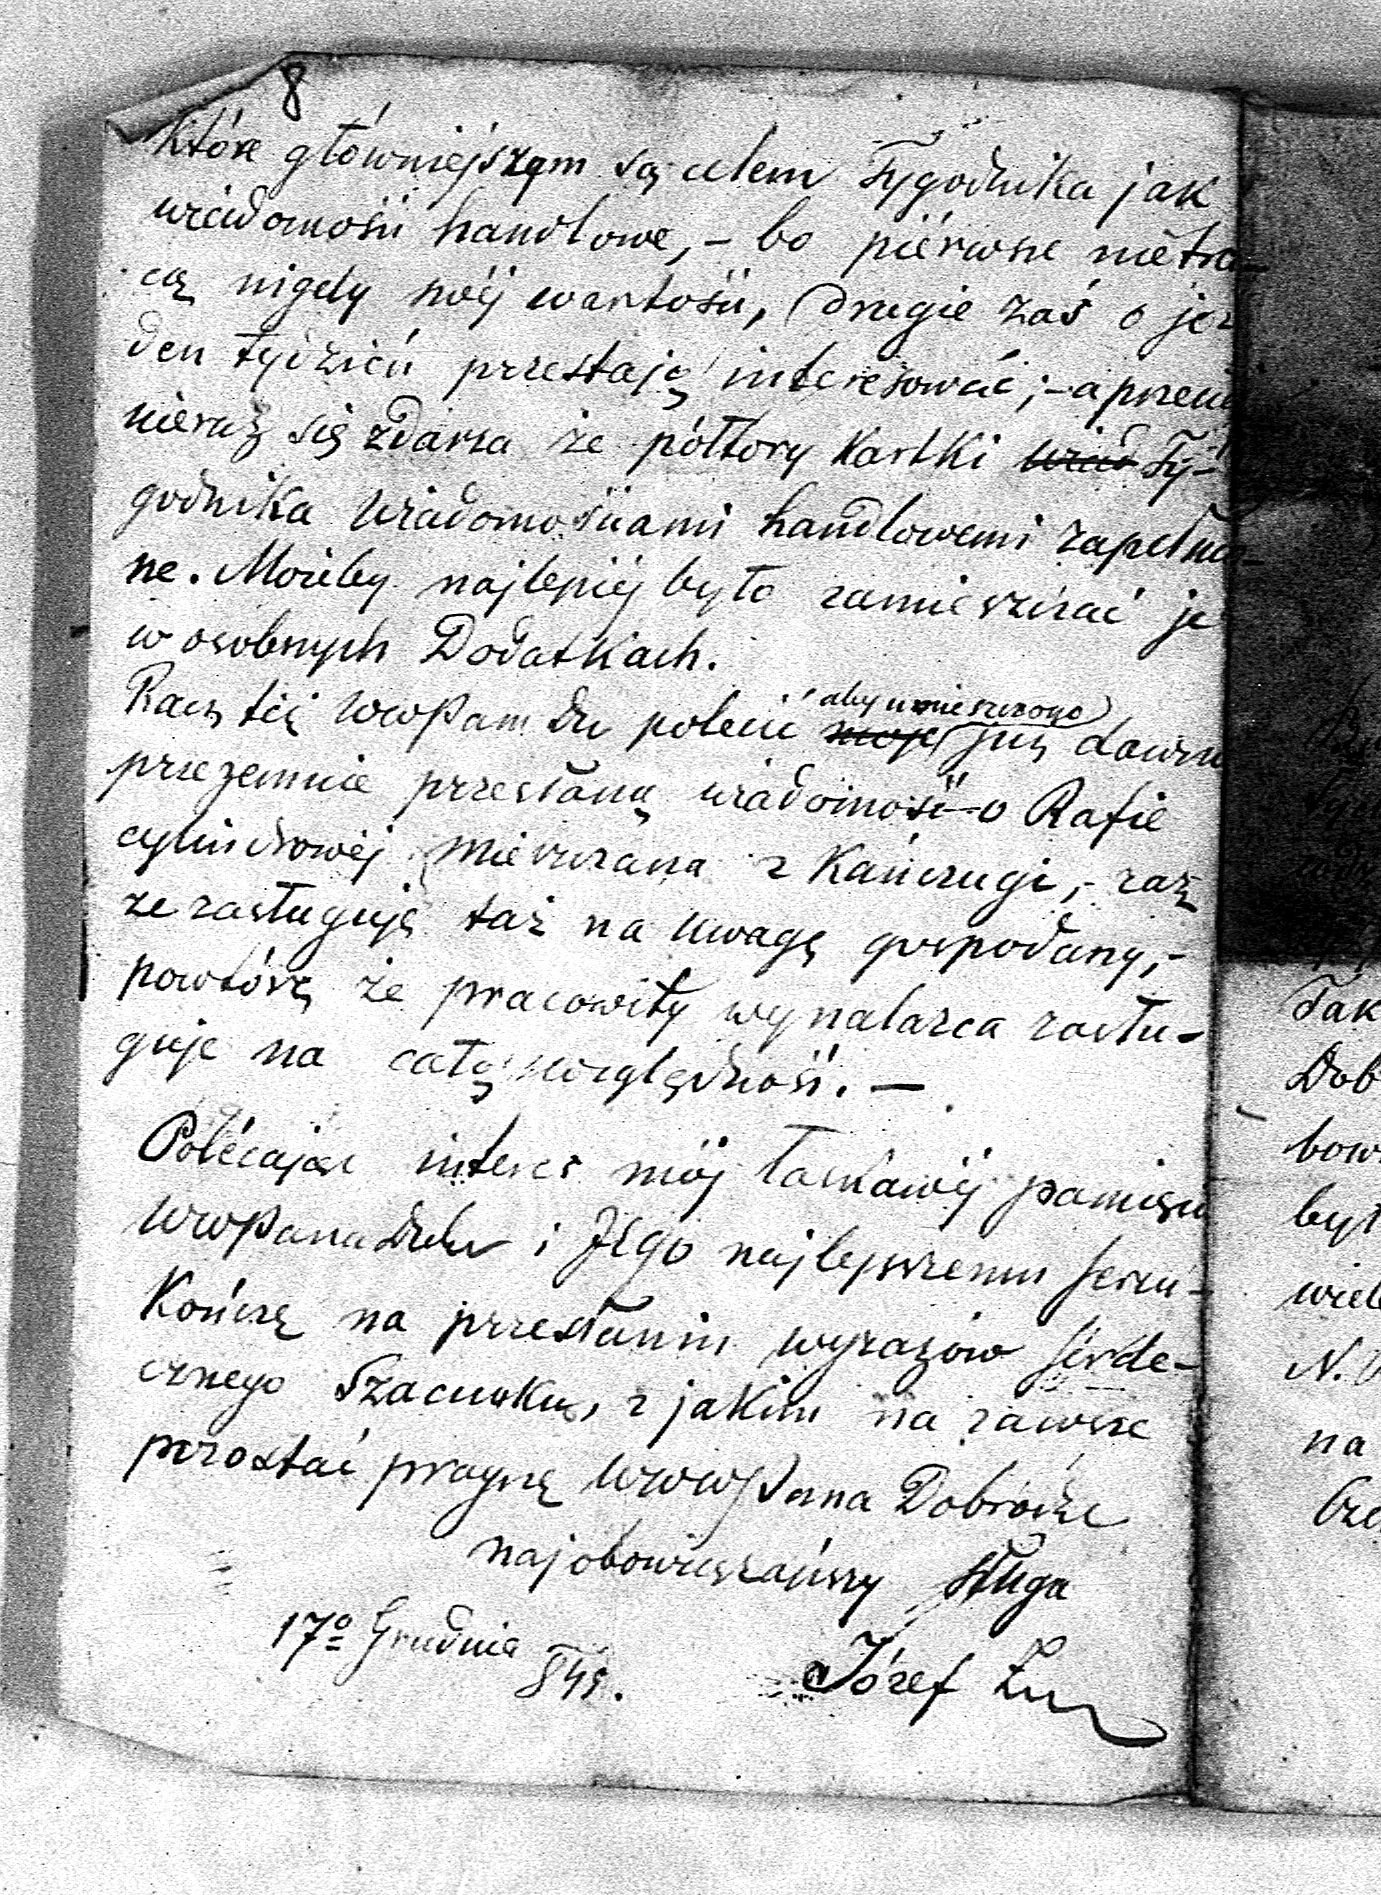 8
które główniejszym są celem Tygodnika jak
wiadomości handlowe, – bo piérwsze nietra-
cą nigdy swéj wartości, drugie zaś o je-
den tydzień przestają interesować; – a przecie
nieraz się zdarza że półtory kartki wiad Ty-
godnika wiadomościami handlowemi zapełnio-
ne. Możeby najlepiéj było zamieszczać je
w osobnych Dodatkach.
aby umieszczono
Racz téż WWPan Du polecić moję już dawno
przezemnie przesłaną wiadomość o Rafie
cylindrowéj z Kańczugi, – raz
że zasługuję taż na uwagę gospodarzy, –
powtórę że pracowity wynalazca zasłu-
guje na całą względność. –
Polécając interes mój łaskawéj pamięci
WWPana Dobr i Jégo najlepszemu sercu –
Kończę na przesłaniu wyrazów serde-
cznego szacunku, z jakim na zawsze
pozostać pragnę WWWPana Dobrodz
najobowiązańszy sługa
17º Grudnia
845.
Józef
Tak
Dob
bow
był
wiel
N.
na